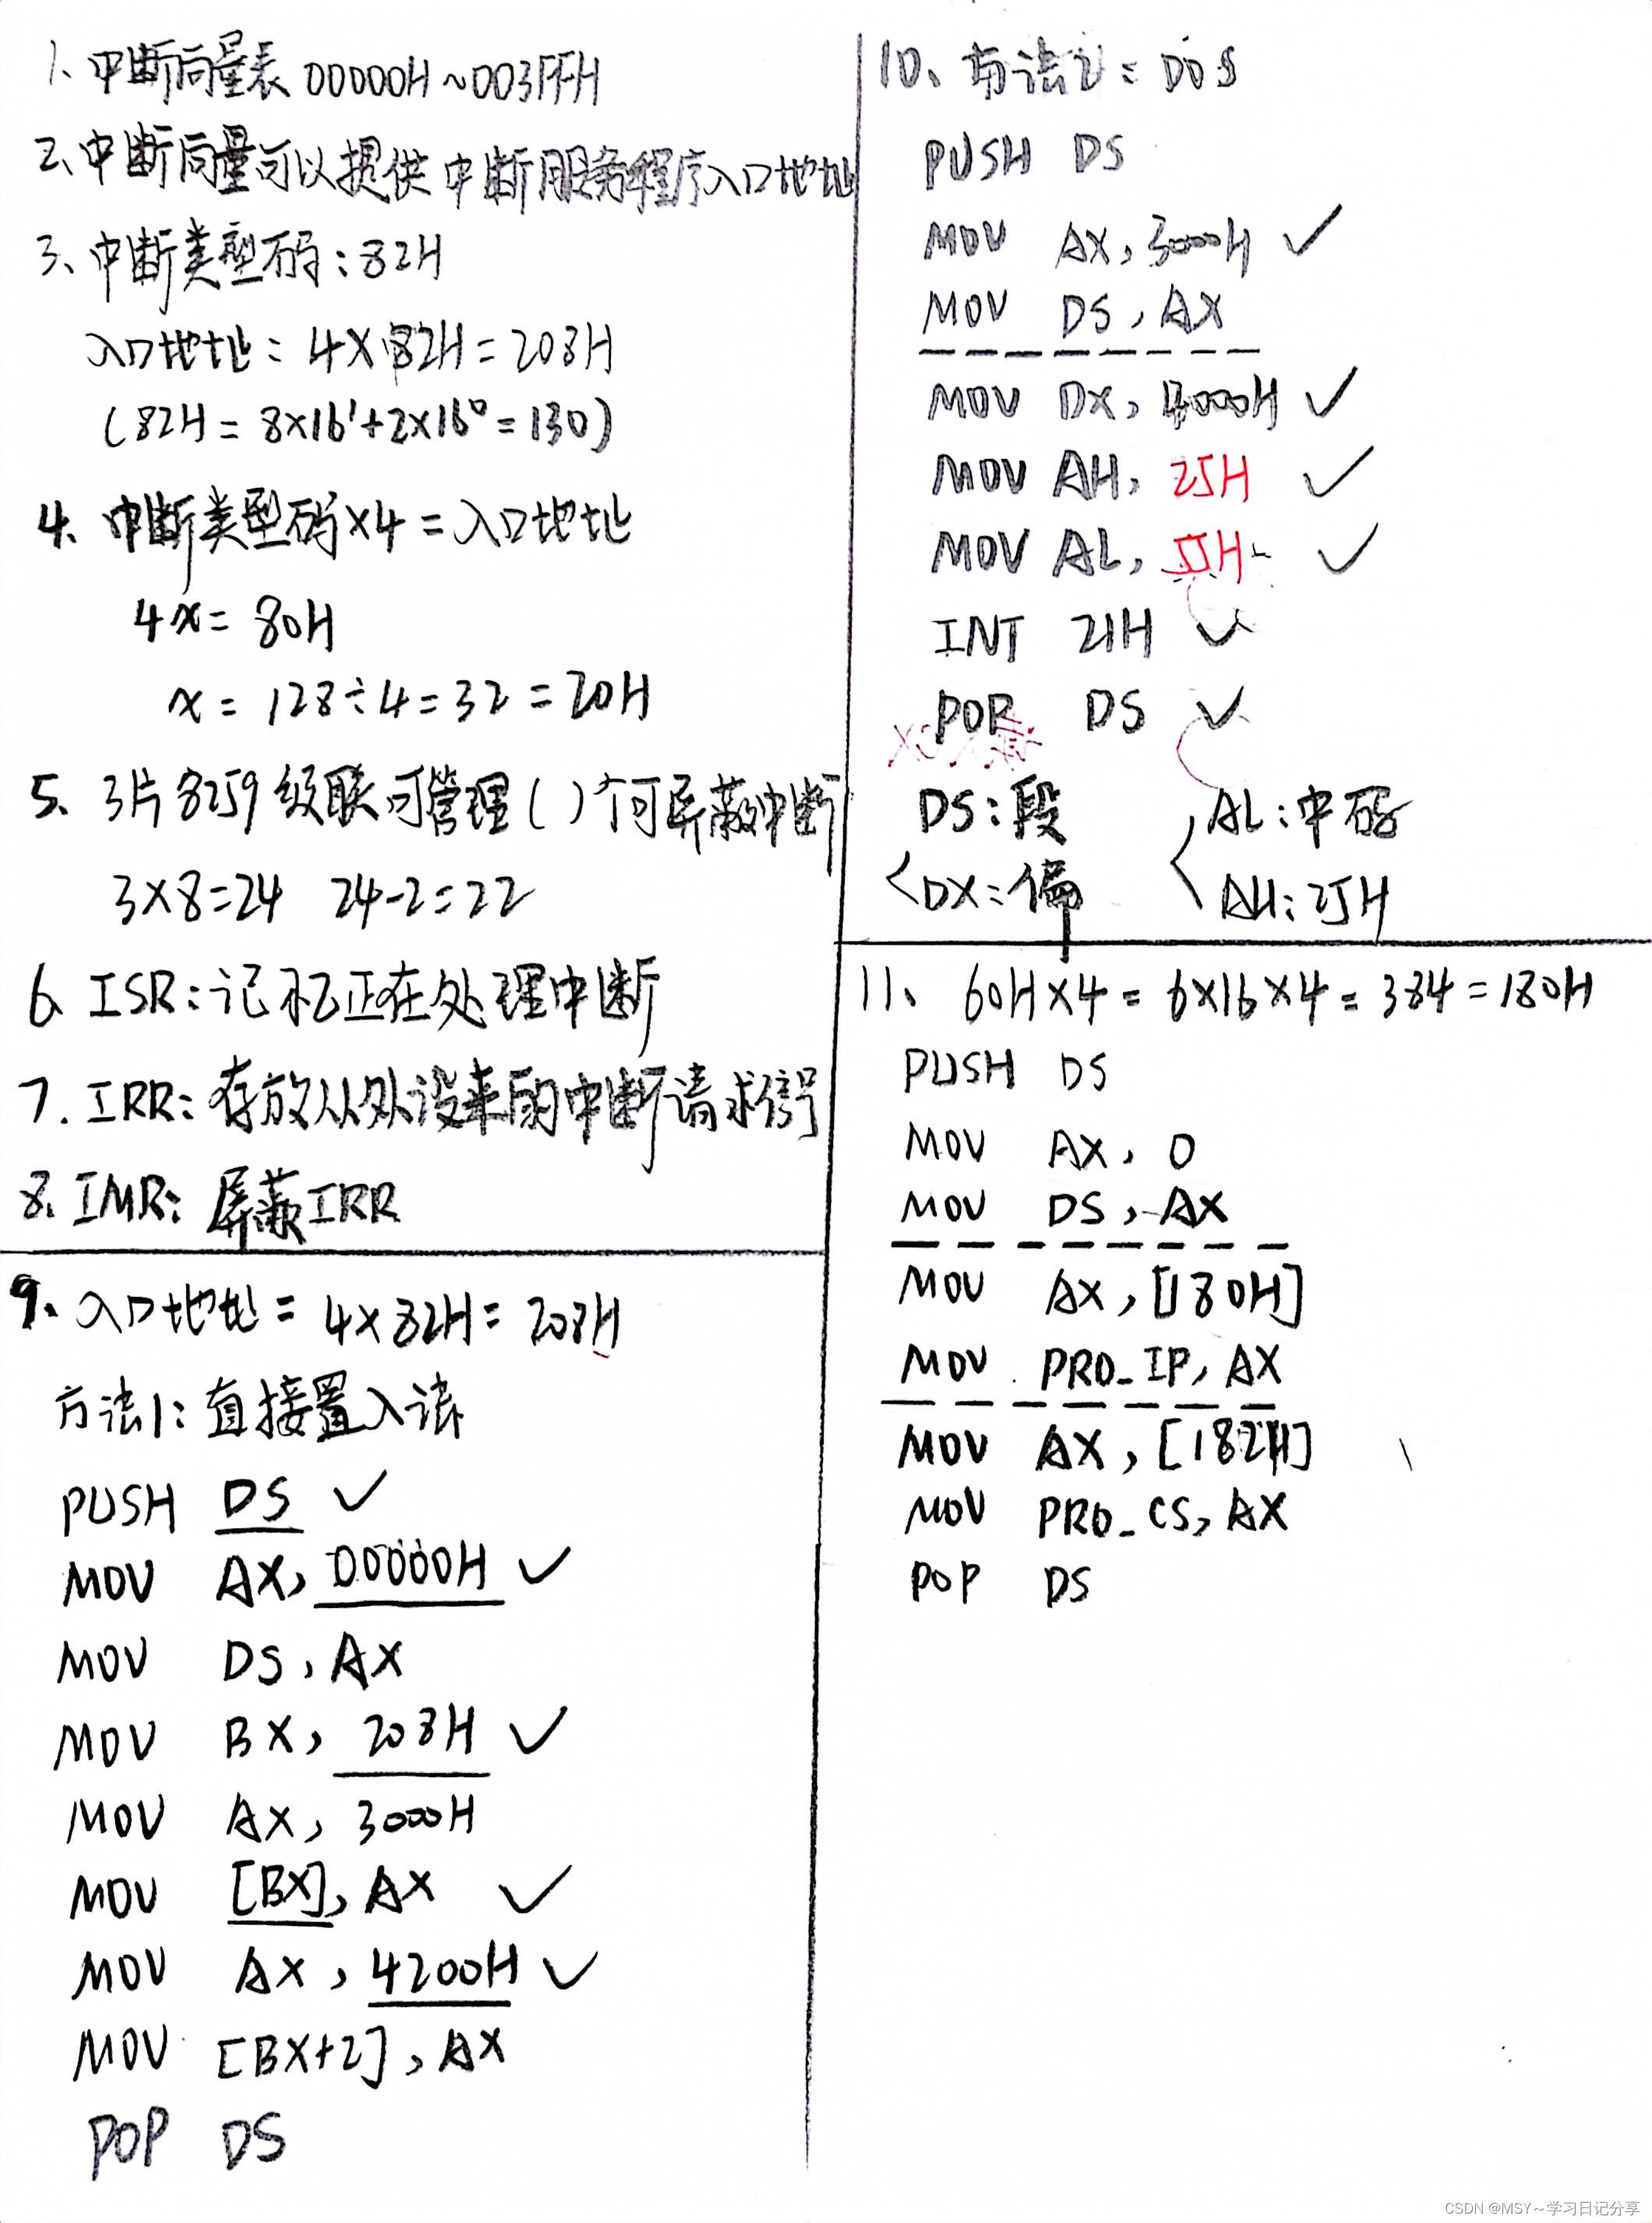 1、中断向量表 00000H~003FFH
2、中断向量可以提供中断服务程序入口地址
3、中断类型码:82H
入口地址:4×82H=208H
(82H=8×16¹+2×16⁰=130)
4、中断类型码×4=入口地址
4x=80H
x=128÷4=32=20H
5、3片8259级联可管理( )个可屏蔽中断
3×8=24 24-2=22
6、ISR:记忆正在处理中断
7.IRR:存放从外设来的中断请求信号
8、IMR:屏蔽IRR
9、入口地址=4×82H=208H
方法1:直接置入法
PUSH DS ✓
MOV AX,00000H ✓
MOV DS,AX
MOV BX,208H ✓
MOV AX,3000H
MOV [BX],AX ✓
MOV AX,4200H ✓
MOV [BX+2],AX
POP DS
10、方法2:DOS
PUSH DS
MOV AX,3000H ✓
MOV DS,AX
MOV DX,4000H ✓
MOV AH,25H ✓
MOV AL,55H ✓
INT 21H ✓
POP DS ✓
DS:段 AL:中码
DX:偏 AH:25H
11、60H×4=6×16×4=384=180H
PUSH DS
MOV AX,0
MOV DS,AX
MOV AX,[180H]
MOV PRO_IP,AX
MOV AX,[182H]
MOV PRO_CS,AX
POP DS
CSDN @MSY~学习日记分享